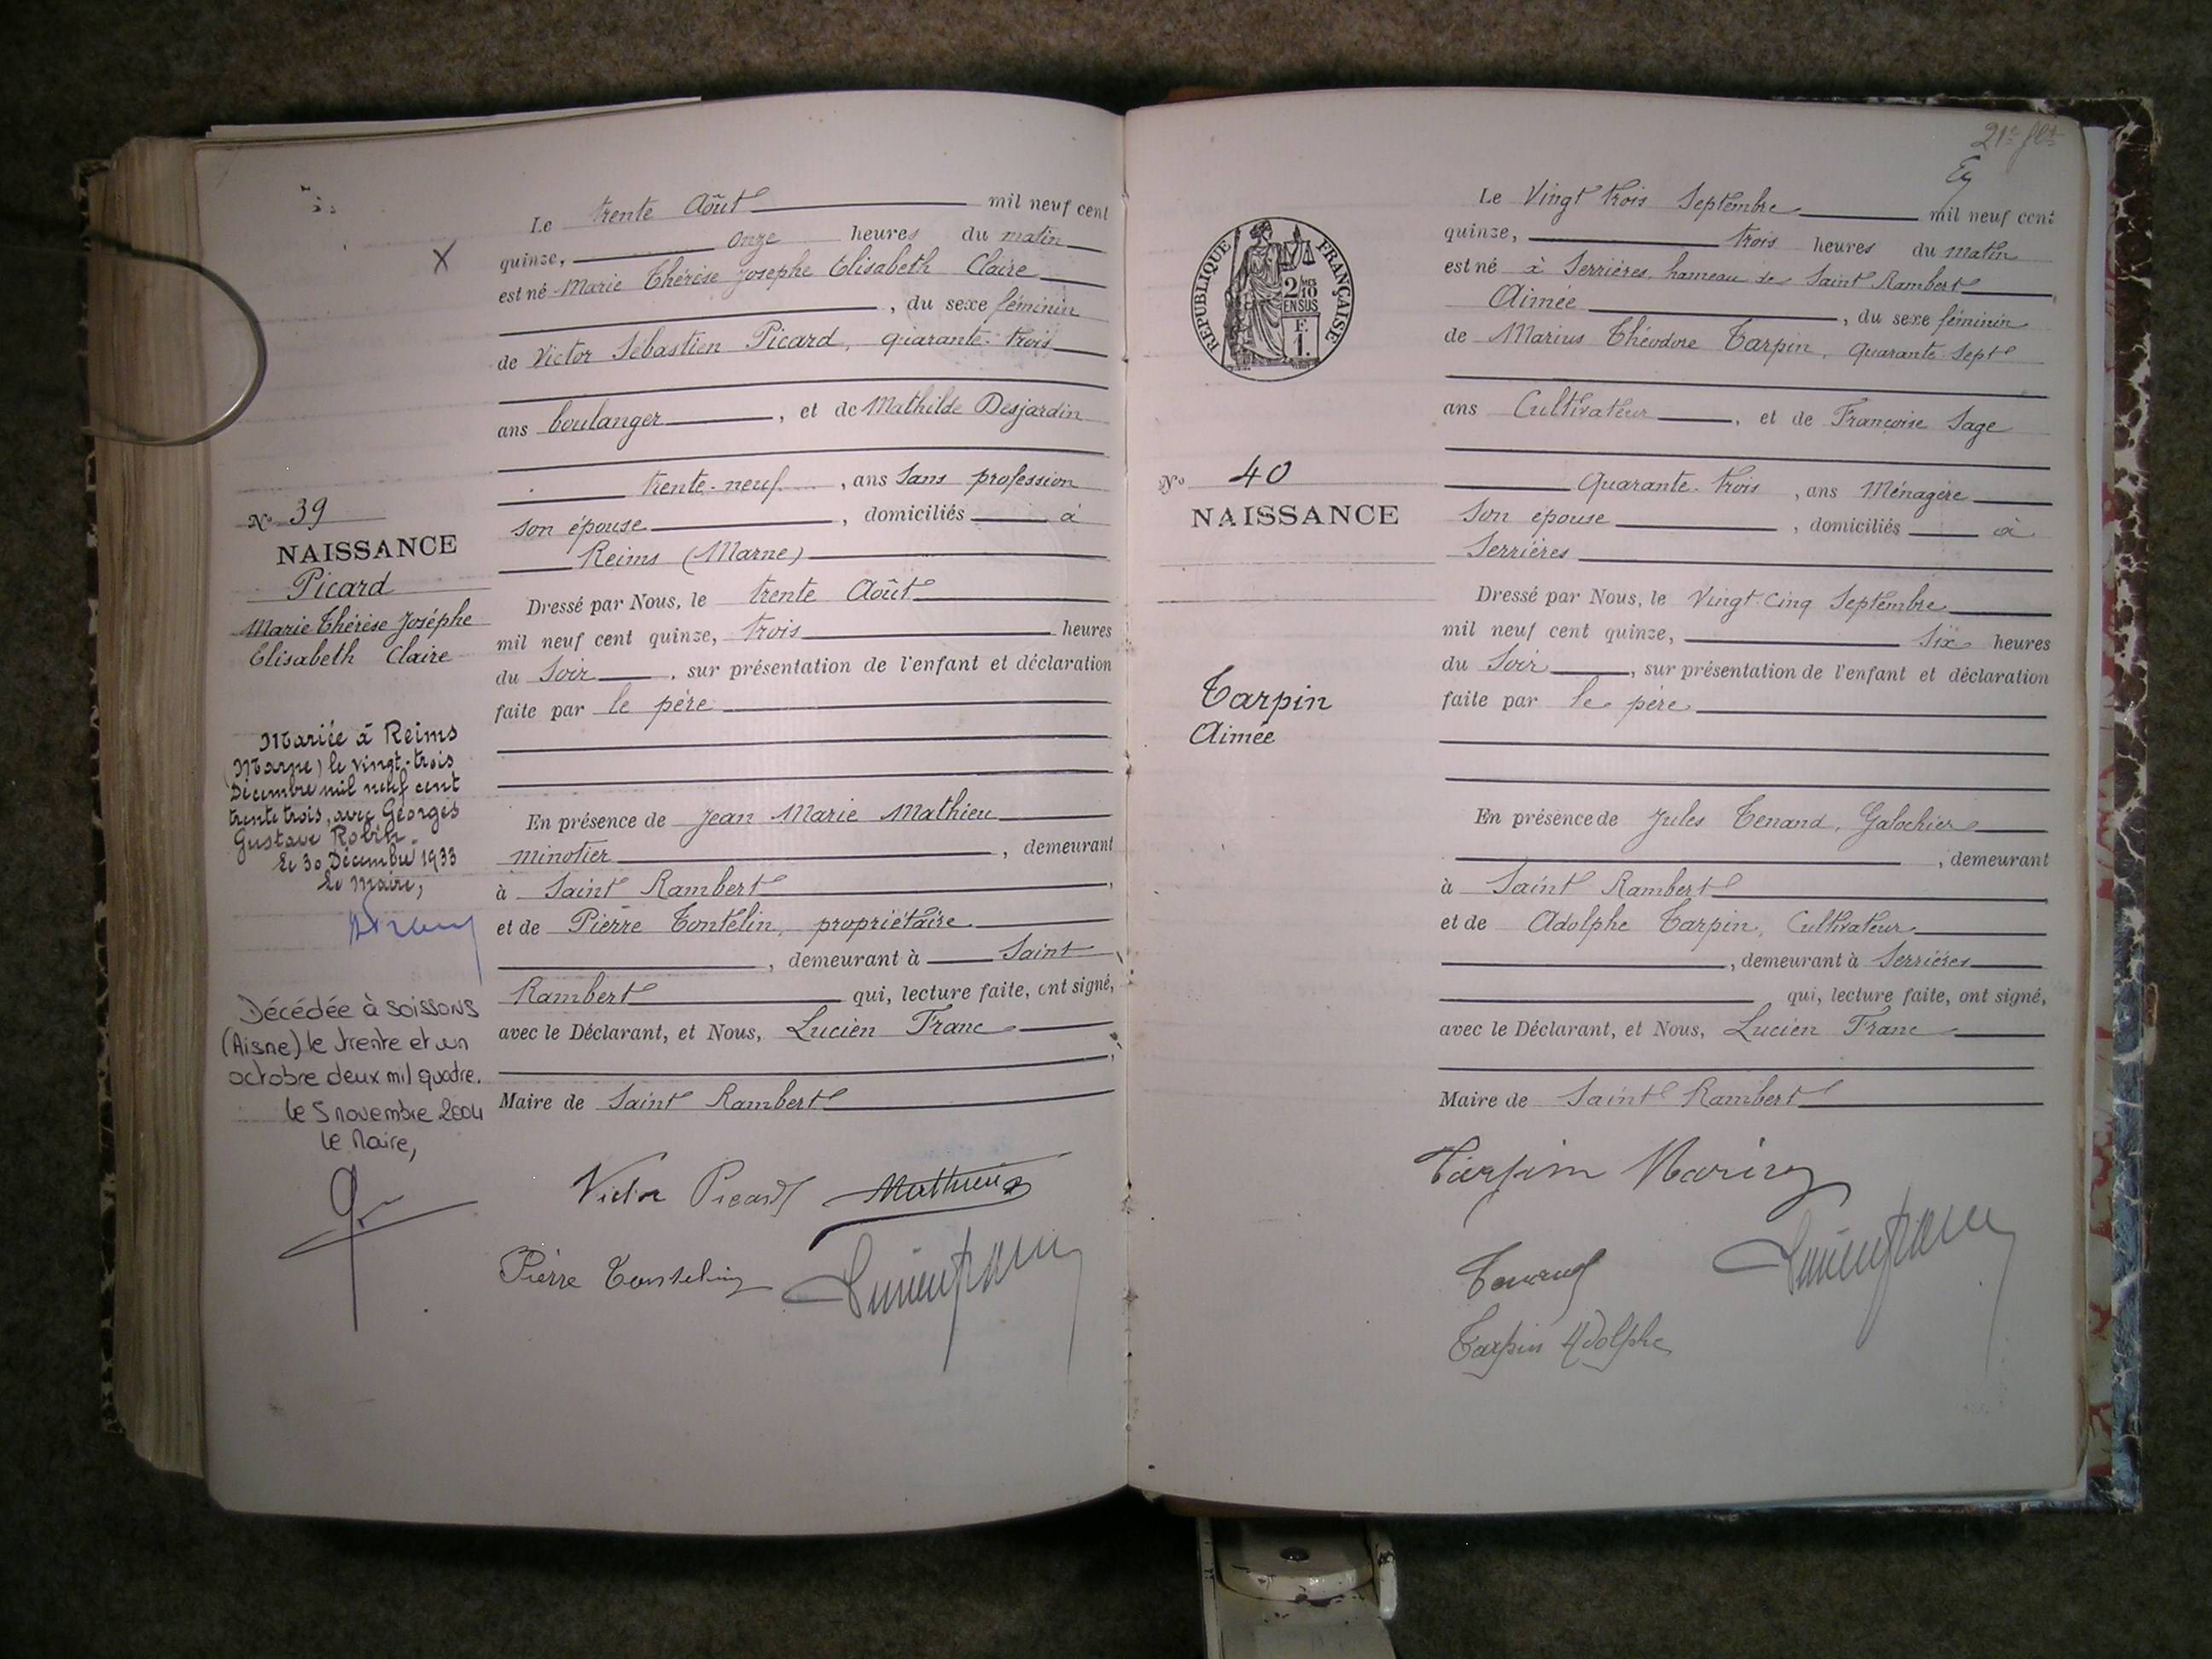 Le trente Août mil neuf cent
quinze, onze heures du matin
est né Marie Thérèse Josephe Elisabeth Claire
, du sexe féminin
de Victor Sébastien Picard, quarante-trois
ans boulanger, et de Mathilde Desjardin
trente-neuf, ans Sans profession
son épouse, domiciliés à
Reims (Marne)
Dressé par Nous, le trente Août
mil neuf cent quinze, trois heures
du Soir, sur présentation de l'enfant et déclaration
faite par le père
En présence de Jean Marie Mathieu
minotier, demeurant
à Saint Rambert,
et de Pierre Tontelin, propriétaire
, demeurant à Saint
Rambert qui, lecture faite, ont signé,
avec le Déclarant, et Nous, Lucien Franc
Maire de Saint Rambert
Victor Picard Mathieu
Pierre Tontelin
N° 39
NAISSANCE
Picard
Marie Thérèse Joséphe
Elisabeth Claire
Mariée à Reims
(Marne) le vingt-trois
Décembre mil neuf cent
trente trois, avec Georges
Gustave Robin.
Le 30 Décembre 1933
Le Maire,
Décédée à Soissons
(Aisne) le trente et un
octobre deux mil quatre.
le 5 novembre 2004
le Maire,
Le Vingt trois Septembre mil neuf cent
quinze, trois heures du Matin
est né à Serrières, hameau de Saint Rambert
Aimée, du sexe féminin
de Marius Théodore Tarpin, Quarante-Sept
ans Cultivateur, et de Françoise Sage
Quarante-trois, ans Ménagère
Son épouse, domiciliés à
Serrières
Dressé par Nous, le Vingt-Cinq Septembre
mil neuf cent quinze, Six heures
du Soir, sur présentation de l'enfant et déclaration
faite par le père
En présence de Jules Tenand, Galochier
, demeurant
à Saint Rambert
et de Adolphe Tarpin, Cultivateur
, demeurant à Serrières
qui, lecture faite, ont signé,
avec le Déclarant, et Nous, Lucien Franc
Maire de Saint Rambert
Tarpin Marius
Tenand
Tarpin Adolphe
RÉPUBLIQUE FRANÇAISE
2/10 EN SUS
F. 1.
N° 40
NAISSANCE
Tarpin
Aimée